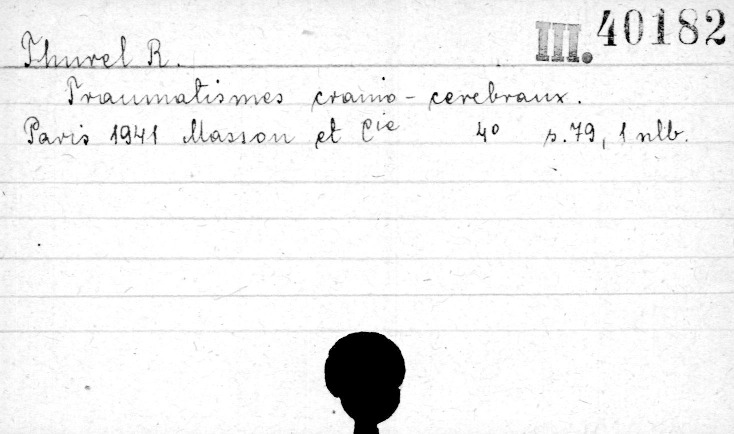 III. 40182
Thurel R.
Traumatismes cranio-cerebraux.
Paris 1941 Masson et Cie 4° s. 79, 1 nlb.